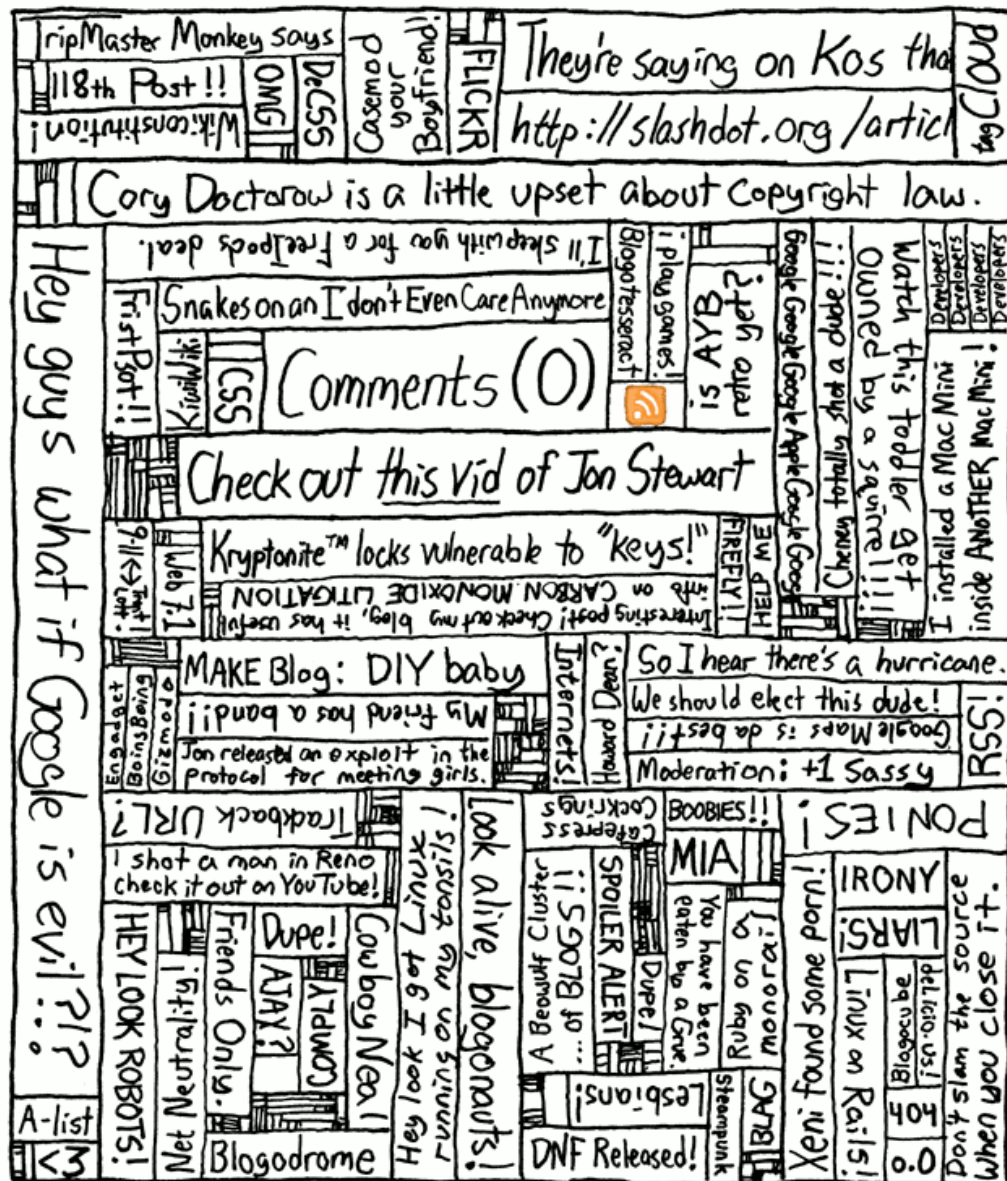 TripMaster Monkey says
118th Post!!
Wikiconstitution!
OMG
DeCSS
Casemod
your
Boyfriend!
FLICKR
They're saying on Kos tha
http://slashdot.org/articl
tag Cloud
Cory Doctorow is a little upset about copyright law.
Hey guys what if Google is evil?!?
I'll sleep with you for a FreeIpods deal.
Snakes on an I don't Even Care Anymore
Frist Psot!!
KiwiWiki
CSS
Comments (0)
Blogotesseract
i play games!
is AYB
retro yet?
Google Google Google Apple Google Google
Cheney totally shot a dude!!!
Watch this toddler get
owned by a squirrel!!!!
Developers
Developers
Developers
Developers
I installed a Mac Mini
inside ANOTHER Mac Mini!
Check out this vid of Jon Stewart
9-11 <-> Trent
Lott!
Web 7.1
Kryptonite™ locks vulnerable to "keys!"
Interesting post! Check out my blog, it has useful
info on CARBON MONOXIDE LITIGATION
FIREFLY!!
HELP ME
Engadget
Boing Boing
Gizmodo
MAKE Blog: DIY baby
My friend has a band!!
Jon released an exploit in the
protocol for meeting girls.
Internets!
Howard Dean?
So I hear there's a hurricane.
We should elect this dude!
Google Maps is da best!!!
Moderation: +1 Sassy
RSS!
Trackback URL?
I shot a man in Reno
check it out on YouTube!
HEY LOOK ROBOTS!
Net Neutrality!
Friends Only.
Dupe!
AJAX?
COMPLY
CowboyNeal
Blogodrome
Hey look I got Linux
running on my tonsils!
Look alive, blogonauts!
Cafepress
Cockrings
A Beowulf Cluster
... of BLOGS!!
SPOILER ALERT!
Dupe!
Lesbians!
DNF Released!
BOOBIES!!
MIA
You have been
eaten by a Grue.
Ruby on a
monorail
Steampunk
BLAG
Xeni found some porn!
PONIES!
IRONY
LIARS!
Linux on Rails!
Blogocube
del.icio.us
404
o.O
Don't slam the source
When you close it.
A-list
<3